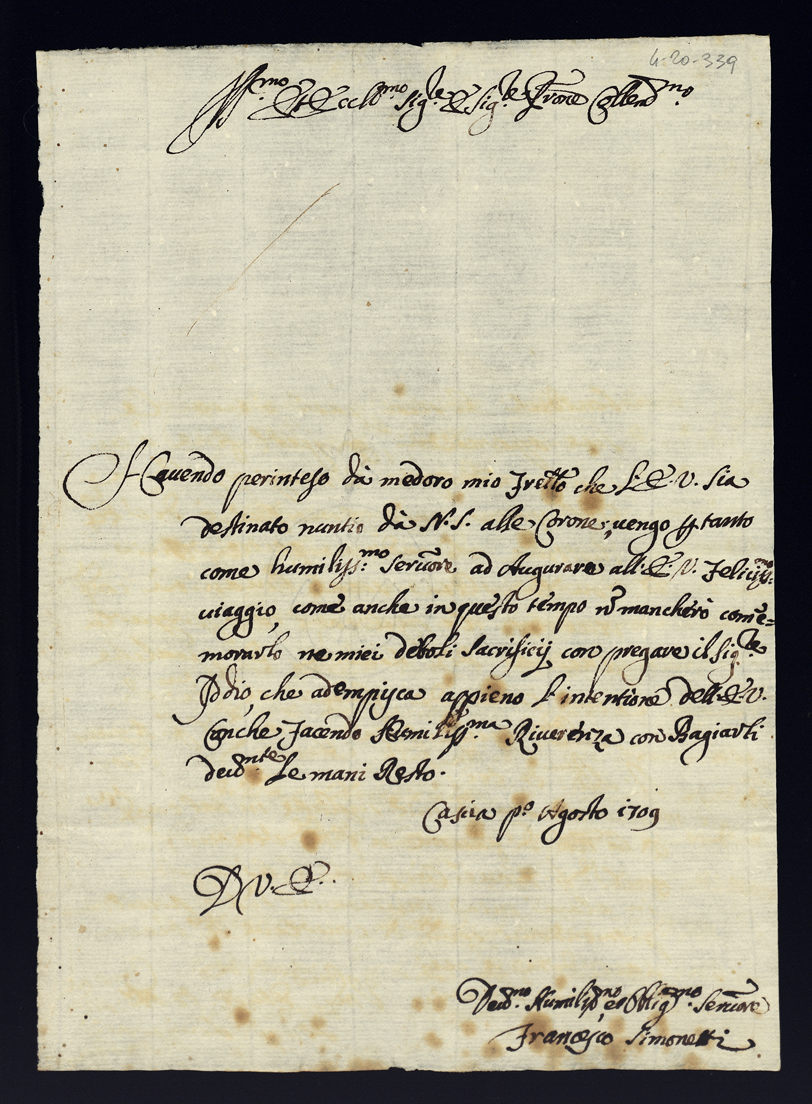 4-20-339
Ill.mo Et Ecc.mo Sig.re E Sig.re Prone Collend.mo
Havendo perinteso dà medoro mio Frello che L.E.V. sia
destinato nuntio dà N.S. alle Corone, vengo p tanto
come humiliss.mo servore ad Augurare all.E.V. Feliciss.mo
viaggio, come anche in questo tempo nō mancherò comē=
morarlo ne miei deboli sacrificij con pregare il Sig.re
Iddio, che adempisca appieno l'intentione dell.E.V.
Conche facendo Humiliss.ma Riverenza con Bagiarli
devo.nte Le mani Resto.
Cascia p.o Agosto 1709
D V.E.
Devo.mo Humiliss.mo, et Oblig.mo Servore
Francesco Simonetti